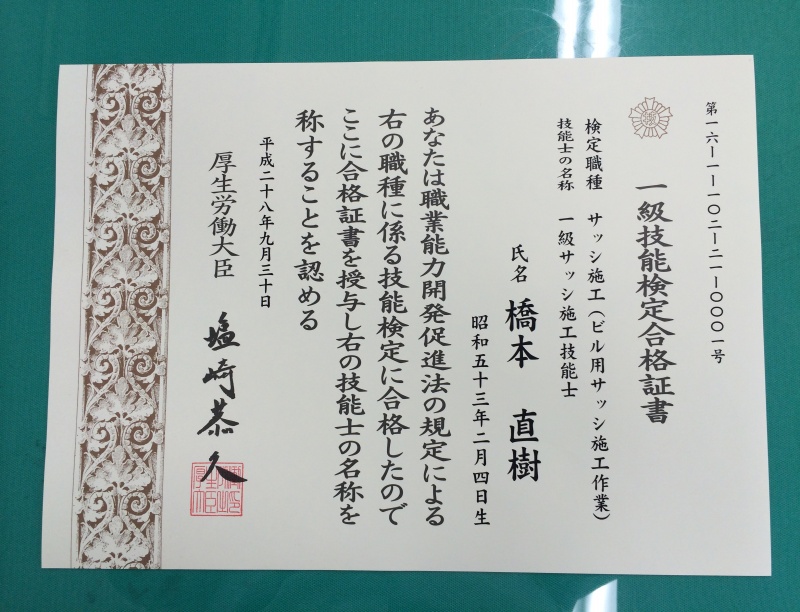 第一六ー一ー一〇二ー二一ー〇〇〇一号
一級技能検定合格証書
検定職種 サッシ施工(ビル用サッシ施工作業)
技能士の名称 一級サッシ施工技能士
氏名 橋本 直樹
昭和五十三年二月四日生
あなたは職業能力開発促進法の規定による
右の職種に係る技能検定に合格したので
ここに合格証書を授与し右の技能士の名称を
称することを認める
平成二十八年九月三十日
厚生労働大臣 塩崎恭久